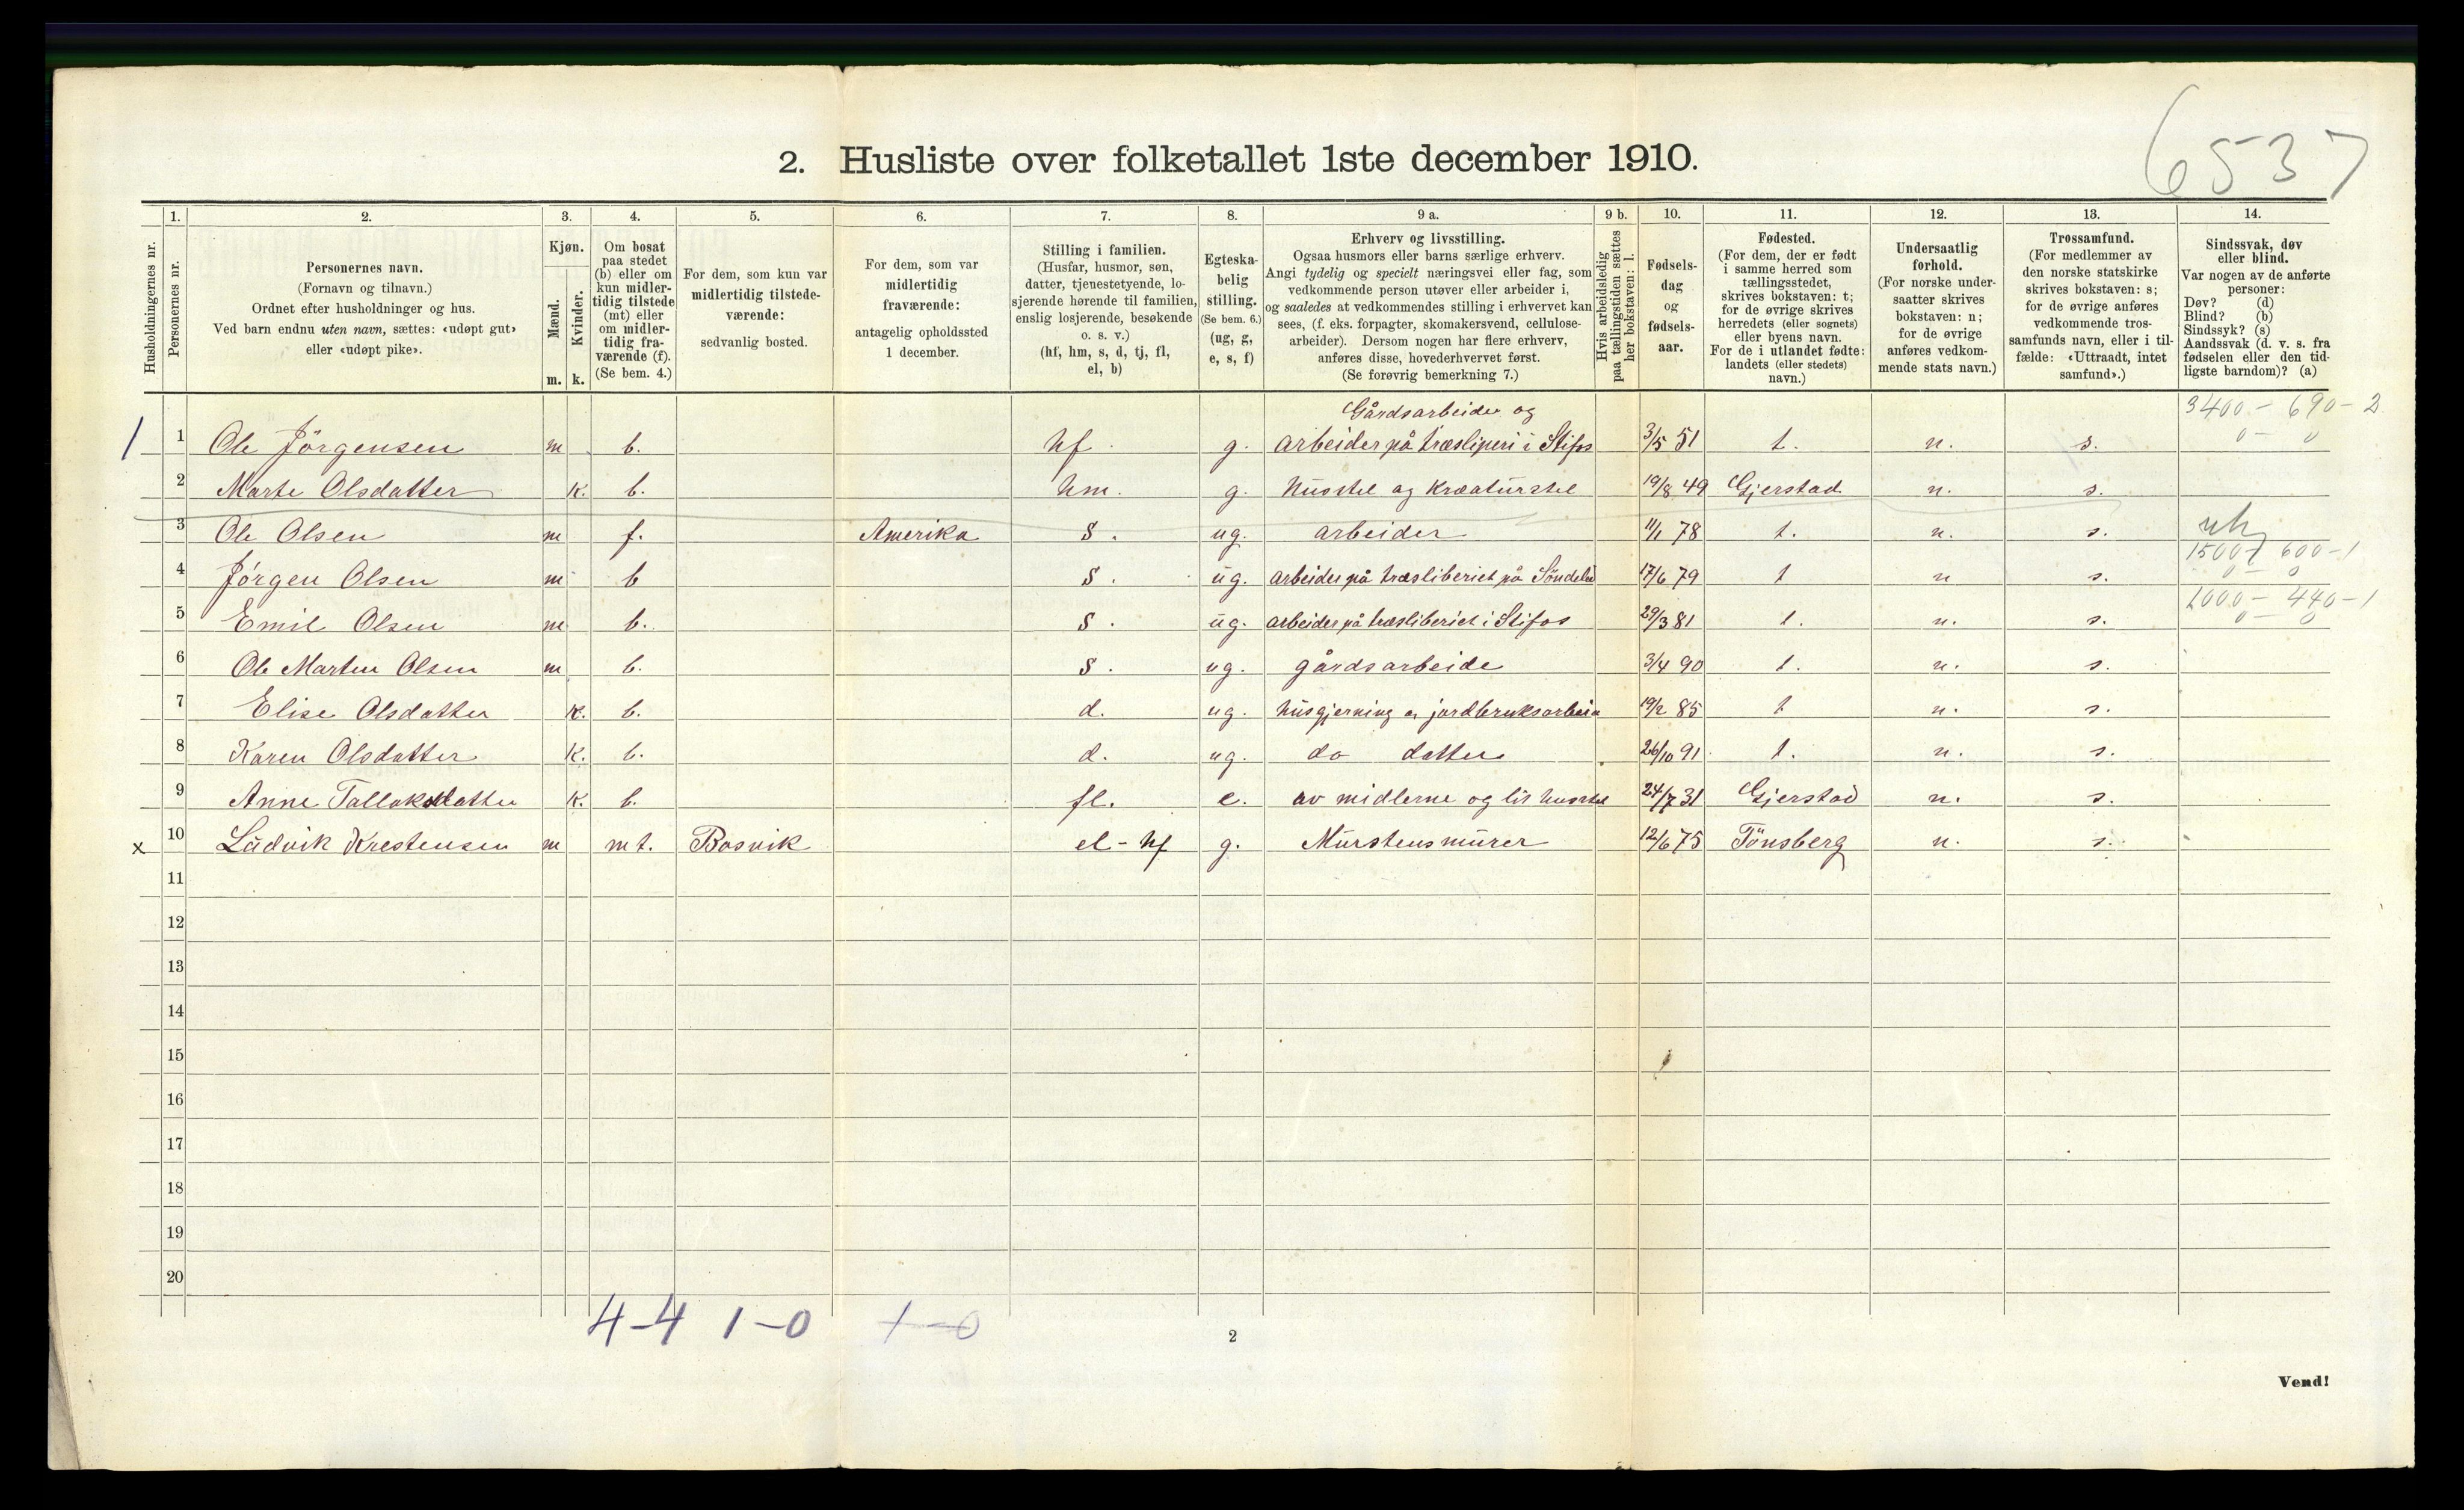 6537
2. Husliste over folketallet 1ste december 1910.
1. 2. 3. 4. 5. 6. 7. 8. 9 a. 9 b. 10. 11. 12. 13. 14.
Husholdningernes nr.
Personernes nr.
Personernes navn.
(Fornavn og tilnavn.)
Ordnet efter husholdninger og hus.
Ved barn endnu uten navn, sættes: «udøpt gut»
eller «udøpt pike».
Kjøn.
Mænd.
Kvinder.
m. k.
Om bosat
paa stedet
(b) eller om
kun midler-
tidig tilstede
(mt) eller
om midler-
tidig fra-
værende (f).
(Se bem. 4.)
For dem, som kun var
midlertidig tilstede-
værende:
sedvanlig bosted.
For dem, som var
midlertidig
fraværende:
antagelig opholdssted
1 december.
Stilling i familien.
(Husfar, husmor, søn,
datter, tjenestetyende, lo-
sjerende hørende til familien,
enslig losjerende, besøkende
o. s. v.)
(hf, hm, s, d, tj, fl,
el, b)
Egteska-
belig
stilling.
(Se bem. 6.)
(ug, g,
e, s, f)
Erhverv og livsstilling.
Ogsaa husmors eller barns særlige erhverv.
Angi tydelig og specielt næringsvei eller fag, som
vedkommende person utøver eller arbeider i,
og saaledes at vedkommendes stilling i erhvervet kan
sees, (f. eks. forpagter, skomakersvend, cellulose-
arbeider). Dersom nogen har flere erhverv,
anføres disse, hovederhvervet først.
(Se forøvrig bemerkning 7.)
Hvis arbeidsledig
paa tællingstiden sættes
her bokstaven: l.
Fødsels-
dag
og
fødsels-
aar.
Fødested.
(For dem, der er født
i samme herred som
tællingsstedet,
skrives bokstaven: t;
for de øvrige skrives
herredets (eller sognets)
eller byens navn.
For de i utlandet fødte:
landets (eller stedets)
navn.)
Undersaatlig
forhold.
(For norske under-
saatter skrives
bokstaven: n;
for de øvrige
anføres vedkom-
mende stats navn.)
Trossamfund.
(For medlemmer av
den norske statskirke
skrives bokstaven: s;
for de øvrige anføres
vedkommende tros-
samfunds navn, eller i til-
fælde: «Uttraadt, intet
samfund».)
Sindssvak, døv
eller blind.
Var nogen av de anførte
personer:
Døv? (d)
Blind? (b)
Sindssyk? (s)
Aandssvak (d. v. s. fra
fødselen eller den tid-
ligste barndom)? (a)
Gårdsarbeider og 3400 - 690 - 2
1 1 Ole Jörgensen m b. hf. g. arbeider på træsliperi i Stifos 3/5 51 t. n. s. 0 - 0
2 Marte Olsdatter k. b. hm. g. husstel og kreaturstel 19/8 49 Gjerstad n. s.
3 Ole Olsen m f. Amerika s. ug. arbeider 11/1 78 t. n. s.
1500 - 600 - 1
4 Jörgen Olsen m b s. ug. arbeider på træsliberiet på Söndeled 17/6 79 t n s. 0 - 0
1000 - 440 - 1
5 Emil Olsen m b. s. ug. arbeider på træsliberiet i Stifos 29/3 81 t. n. s. 0 - 0
6 Ole Martin Olsen m b. s. ug. gårdsarbeide 3/4 90 t. n. s.
7 Elise Olsdatter k. b. d. ug. husgjerning og jordbruksarbeide 19/2 85 t n. s.
8 Karen Olsdatter k. b. d. ug. do datter 26/10 91 t. n. s.
9 Anne Tallaksdatter k. b. fl. e. av midlerne og lit husstel 24/7 31 Gjerstad n. s.
x 10 Ludvik Krestensen m mt. Bosvik el - hf g. Murstensmurer 12/6 75 Tönsberg n. s.
11
12
13
14
15
16
17
18
19
20
4-4 1-0 1-0
2
Vend!